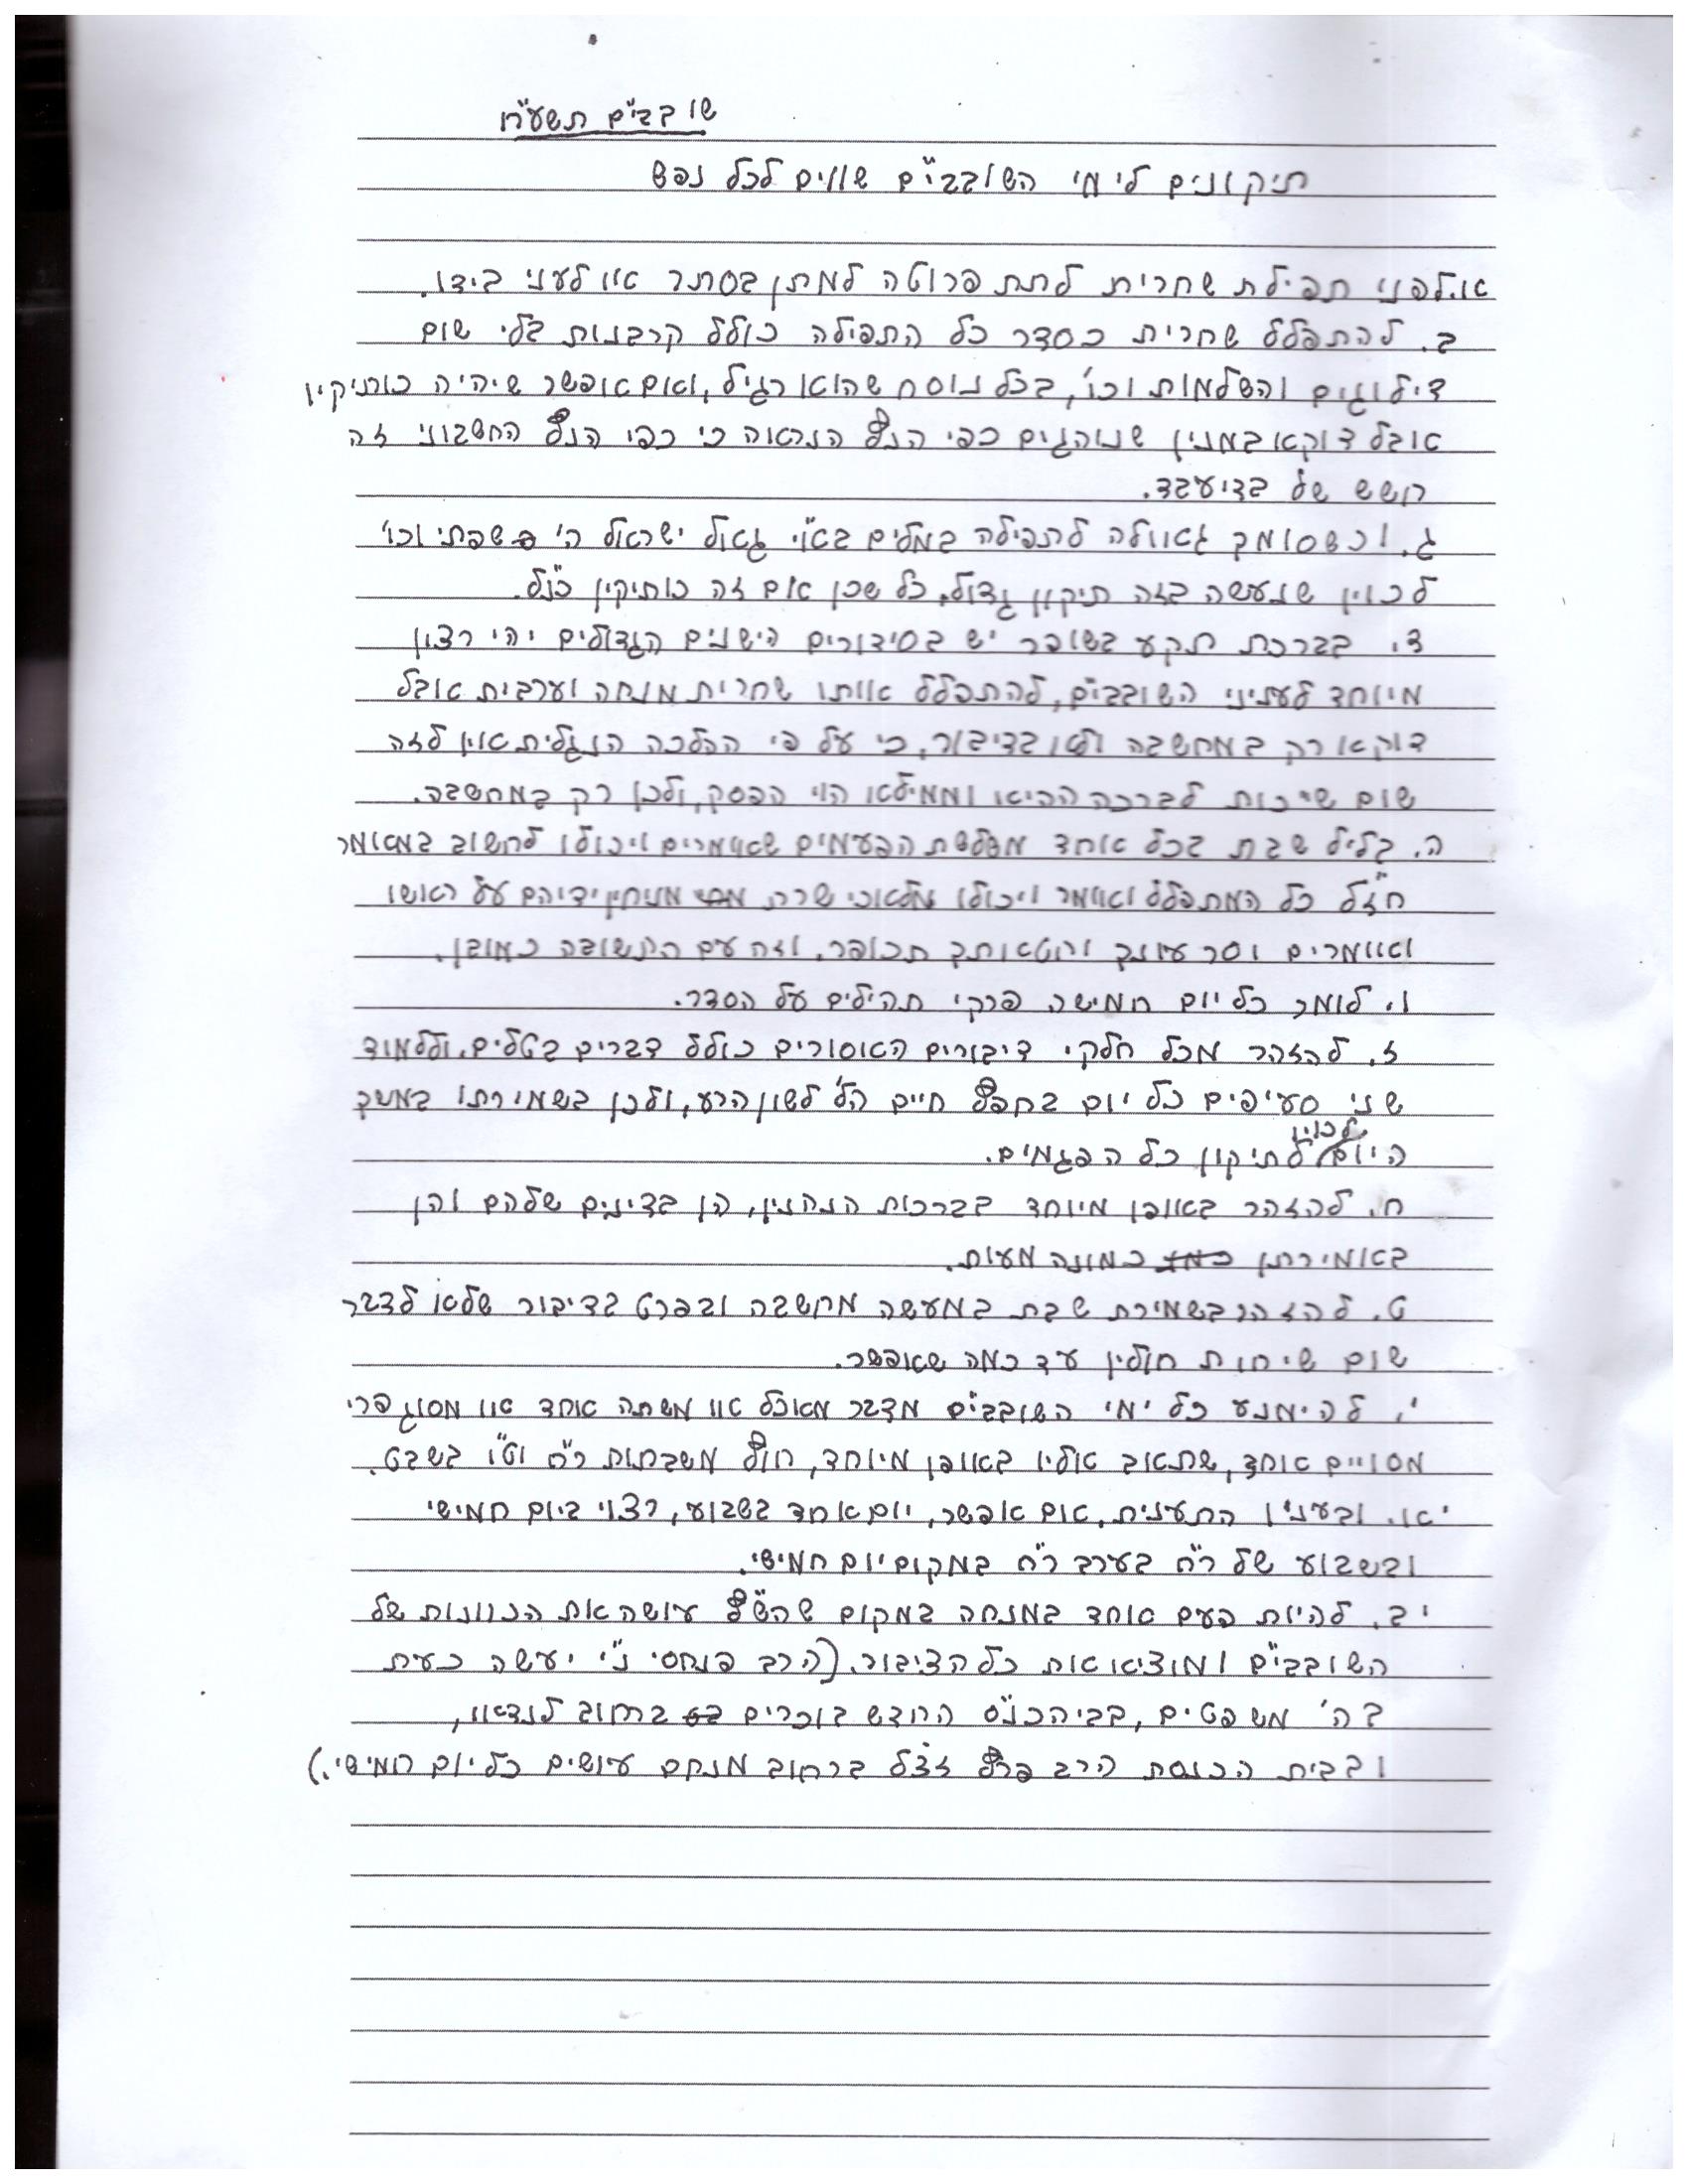 שובבי"ם תשע"ח
תיקונים לימי השובבי"ם שווים לכל נפש
א. לפני תפילת שחרית לתת פרוטה למתן בסתר או לעני בידו.
ב. להתפלל שחרית כסדר כל התפילה כולל קרבנות בלי שום
דילוגים והשלמות וכו', בכל נוסח שהוא רגיל, ואם אפשר שיהיה כותיקין
אבל דוקא במנין שנוהגים כפי הנץ הנראה כי כפי הנץ החשבוני זה
חשש של בדיעבד.
ג. וכשסומך גאולה לתפילה במלים בא"י גאל ישראל ה' שפתי וכו'
לכוין שנעשה בזה תיקון גדול, כל שכן אם זה כותיקין כנ"ל.
ד. בברכת תקע בשופר יש בסידורים הישנים הגדולים יהי רצון
מיוחד לעניני השובבי"ם, להתפלל אותו שחרית מנחה וערבית אבל
דוקא רק במחשבה ולא בדיבור, כי על פי ההלכה הנגלית אין לזה
שום שייכות לברכה ההיא וממילא הוי הפסק, ולכן רק במחשבה.
ה. בליל שבת בכל אחד משלשת הפעמים שאומרים ויכולו לחשוב במאמר
חז"ל כל המתפלל ואומר ויכולו מלאכי שרת מניחין ידיהם על ראשו
ואומרים וסר עונך וחטאותך תכופר. וזה עם התשובה כמובן.
ו. לומר כל יום חמישה פרקי תהילים על הסדר.
ז. להזהר מכל חלקי דיבורים האסורים כולל דברים בטלים. וללמוד
שני סעיפים כל יום בחפץ חיים הל' לשון הרע, ולכן בשמירתו במשך
היום לכוין לתיקון כל הפגמים.
ח. להזהר באופן מיוחד בברכות הנהנין, הן בדינים שלהם והן
באמירתן כמונה מעות.
ט. להזהר בשמירת שבת במעשה מחשבה ובפרט בדיבור שלא לדבר
שום שיחות חולין עד כמה שאפשר.
י. להימנע כל ימי השובבי"ם מדבר מאכל או משתה אחד או מסוג פרי
מסויים אחד, שתאב אליו באופן מיוחד, חוץ משבתות ר"ח וט"ו בשבט.
יא. ובענין התענית, אם אפשר, יום אחד בשבוע, רצוי ביום חמישי
ובשבוע של ר"ח בערב ר"ח במקום יום חמישי.
יב. להיות פעם אחד במנחה במקום שהש"ץ עושה את הכוונות של
השובבי"ם ומוציא את כל הציבור. (הרב פנחסי נ"י יעשה כעת
בה' משפטים, בביהכנ"ס החדש בוכרים ברחוב לנדאו,
ובבית הכנסת הרב פרץ זצ"ל ברחוב מנחם עושים כל יום חמישי.)